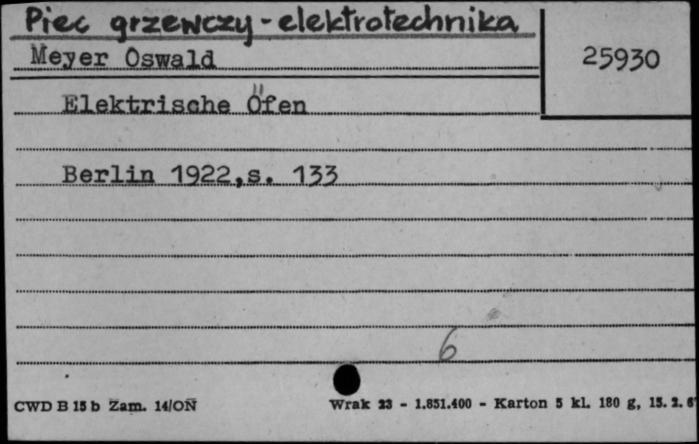 Piec grzewczy - elektrotechnika
Meyer Oswald
25930
Elektrische Öfen
Berlin 1922,s. 133
6
CWD B 15 b Zam. 14/ON Wrak 23 - 1.851.400 - Karton 5 kl. 180 g, 15. 2. 6